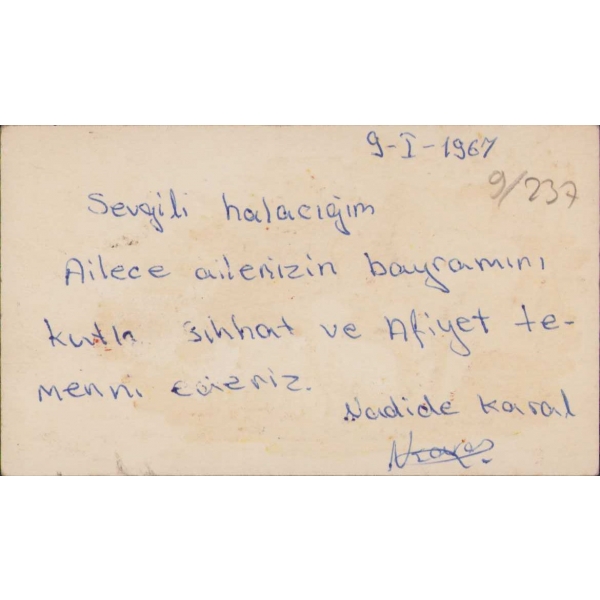 9-I-1967
9/237
Sevgili halacığım
Ailece ailenizin bayramını
kutlr sıhhat ve Afiyet te-
menni ederiz.
Nadide Karal